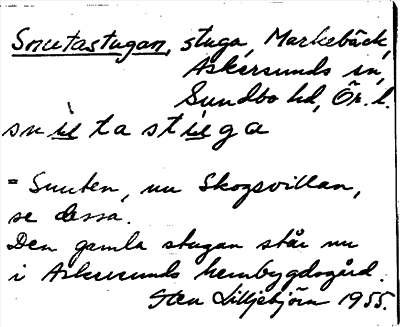 Snutastugan, stuga, Markebäck,
Askersunds sn,
Sundbo hd, Ör. l.
snùtastuga
= Snuten, nu Skogsvillan,
se dessa.
Den gamla stugan står nu
i Askersunds hembygdsgård.
Sten Lilljebjörn 1955.